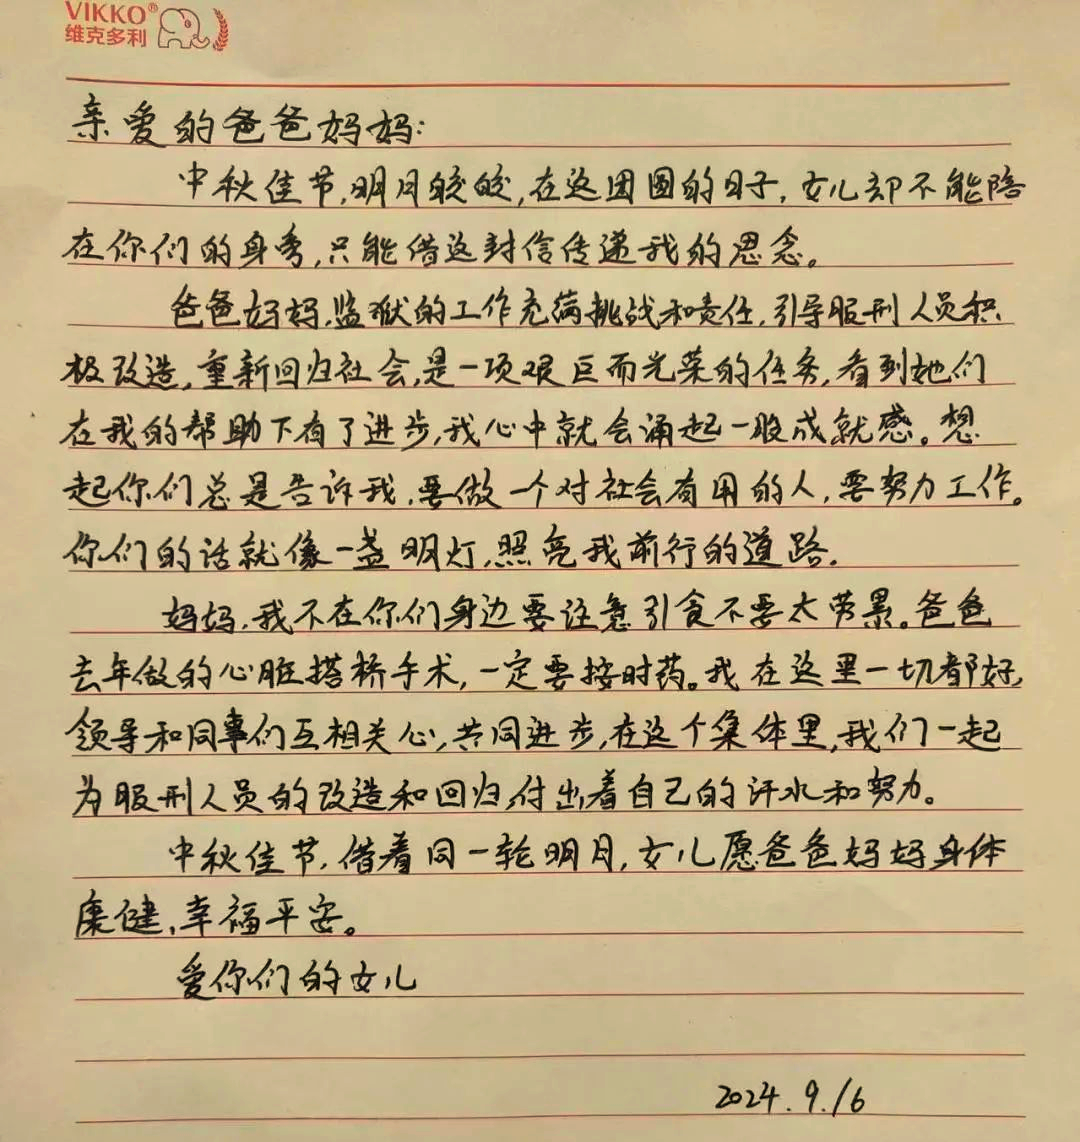 VIKKO®
维克多利
亲爱的爸爸妈妈:
中秋佳节,明月皎皎,在这团圆的日子,女儿却不能陪
在你们的身旁,只能借这封信传递我的思念。
爸爸妈妈,监狱的工作充满挑战和责任,引导服刑人员积
极改造,重新回归社会,是一项艰巨而光荣的任务,看到她们
在我的帮助下有了进步,我心中就会涌起一股成就感。想
起你们总是告诉我,要做一个对社会有用的人,要努力工作。
你们的话就像一盏明灯,照亮我前行的道路.
妈妈,我不在你们身边要注意引食不要太劳累。爸爸
去年做的心脏搭桥手术,一定要按时药。我在这里一切都好,
领导和同事们互相关心,共同进步,在这个集体里,我们一起
为服刑人员的改造和回归,付出着自己的汗水和努力。
中秋佳节,借着同一轮明月,女儿愿爸爸妈妈身体
康健,幸福平安。
爱你们的女儿
2024.9.16